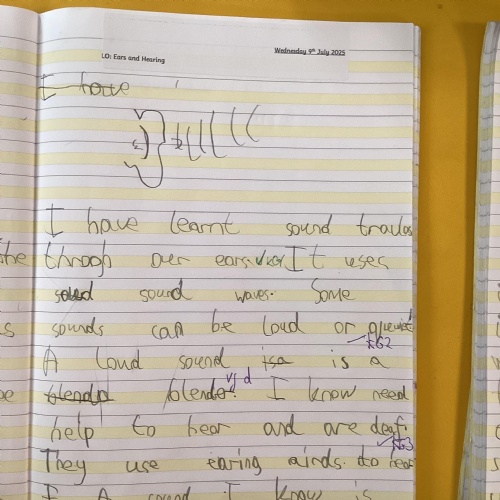 LO: Ears and Hearing
Wednesday 9th July 2025
I have
I have learnt sound travles
the throogh our ears. It uses
sound sound waves. Some
sounds can be loud or queiet.
A loud sound isa is a
blendp blender. I know need
help to hear and are deaf.
They use earing airds. to hear
I A sound I know is